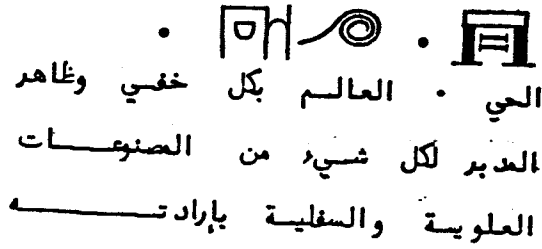 الحي ٠ العالم بكل خفي وظاهر
المدبر لكل شيء من المصنوعات
العلوية والسفلية بإرادته